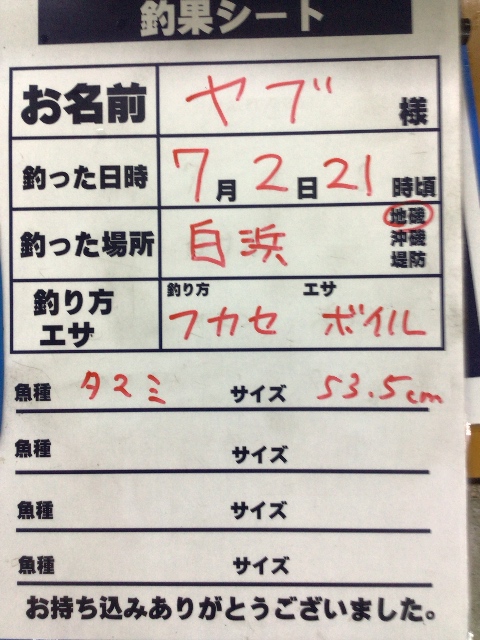 釣果シート
お名前 ヤブ 様
釣った日時 7月2日21時頃
釣った場所 白浜 地磯
沖磯
堤防
釣り方 エサ
釣り方 フカセ ボイル
エサ
魚種 タマミ サイズ 53.5cm
魚種 サイズ
魚種 サイズ
魚種 サイズ
お持ち込みありがとうございました。